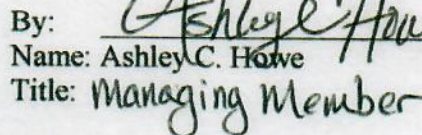 By: Ashley C Howe
Name: Ashley C. Howe
Title: Managing Member